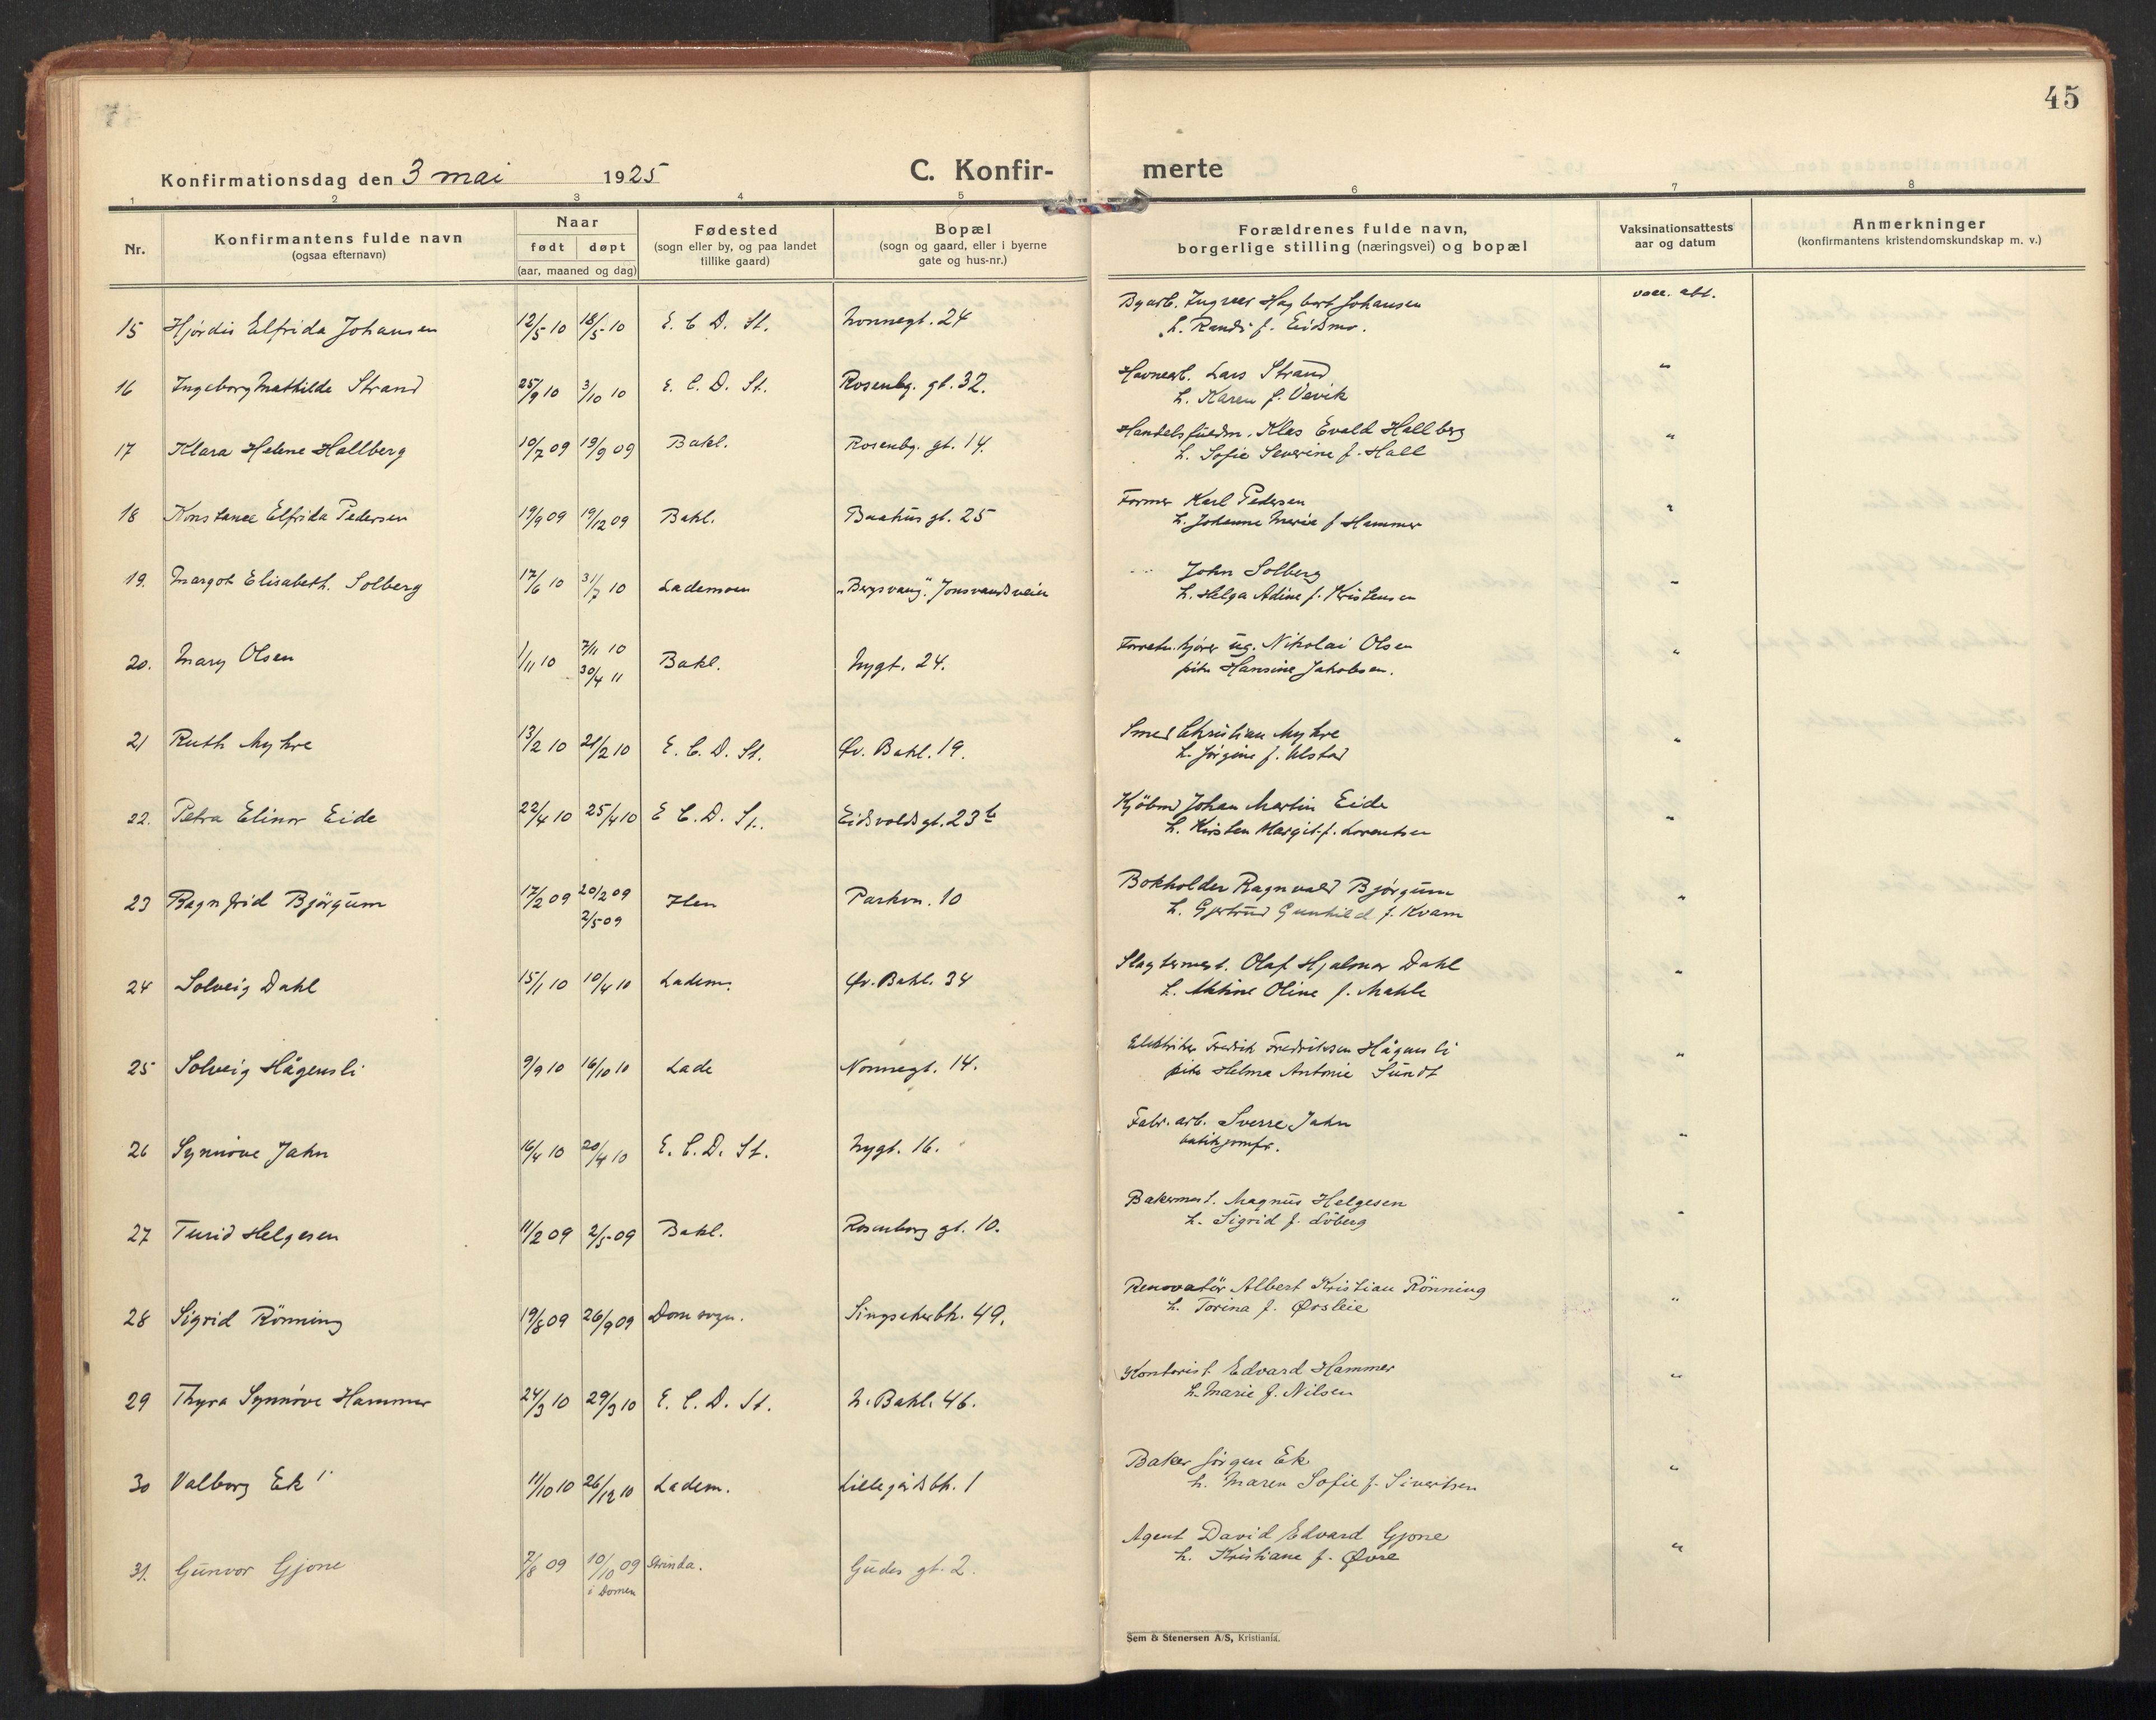 45
Konfirmationsdag den 3 mai 1925
C. Konfir- merte
1 2 3 4 5 6 7 8
Nr.
Konfirmantens fulde navn
(ogsaa efternavn)
Naar
født døpt
(aar, maaned og dag)
Fødested
(sogn eller by, og paa landet
tillike gaard)
Bopæl
(sogn og gaard, eller i byerne
gate og hus-nr.)
Forældrenes fulde navn,
borgerlige stilling (næringsvei) og bopæl
Vaksinationsattests
aar og datum
Anmerkninger
(konfirmantens kristendomskundskap m. v.)
15 Hjördis Elfrida Johansen 12/5 10 18/5 10 E. C. D. St. Nonnegt. 24 Byarb. Ingvar Hagbart Johansen vacc. att.
h. Randi f. Eidsmo.
16 Ingeborg Mathilde Strand 25/9 10 3/10 10 E. C. D. St. Rosenbg. gt. 32. Havnearb. Lars Strand "
h. Karen f. Vevik
17 Klara Helene Hallberg 10/7 09 19/9 09 Bakl. Rosenbg. gt. 14. Handelsfuldm. Klas Evald Hallberg "
h. Sofie Severine f. Hall
18 Konstance Elfrida Pedersen 19/9 09 19/12 09 Bakl. Baahus gt. 25 Former Karl Pedersen "
h. Johanne Marie f Hammer
19. Margot Elisabeth. Solberg 17/6 10 31/7 10 Lademoen "Bergsvang". Jonsvandsveien John Solberg "
h. Helga Adine f. Kristensen
20. Mary Olsen 1/11 10 7/11 10 Bakl. Nygt. 24. Forretn. kjører ug. Nikolai Olsen "
30/4 11 pike Hansine Jakobsen.
21 Ruth Myhre 13/2 10 21/2 10 E. C. D. St. Øv. Bakl. 19. Smed Christian Myhre "
h. Jörgine f. Ulstad
22. Petra Elinor Eide 22/4 10 25/4 10 E C. D. St. Eidsvolds gt. 23 b Kjöbm Johan Martin Eide "
h. Kirsten Margit f. Lorentsen
23 Ragnfrid Björgum 17/2 09 20/2 09 Ilen Parkvn. 10 Bokholder Ragnvald Björgum "
2/5 09 h. Gjertrud Gunhild f. Kvam
24 Solveig Dahl 15/1 10 10/4 10 Ladem. Øv. Bakl. 34 Slagtermest. Olaf Hjalmar Dahl "
h. Oline f. Mahle
25 Solveig Hågensli 9/9 10 16/10 10 Lade Nonnegt. 14. Elektriker Fredrik Fredriksen Hågensli "
pike Helma Antonie Sundt
26 Synnöve Jahn 16/4 10 20/4 10 E. C. D. St. Nygt. 16. Fabr. arb. Sverre Jahn "
27 Turid Helgesen 11/2 09 2/5 09 Bakl. Rosenborg gt. 10. Bakermest. Magnus Helgesen "
h. Sigrid f. Löberg
28 Sigrid Rönning 19/8 09 26/9 09 Dom sogn. Singsakerbk. 49. Renovatör Albert Kristian Rönning "
h. Torina f. Ørsleie
29 Thyra Synnöve Hammer 24/3 10 29/3 10 E. C. D. St. N. Bakl. 46. Kontorist Edvard Hammer "
h. Marie f. Nilsen
30 Valborg Ek 11/10 10 26/12 10 Ladem. Lillegårdsbk. 1 Baker Jörgen Ek "
h. Maren Sofie f. Sivertsen
31. Gunvor Gjone 7/8 09 10/10 09 Strinda. Gudes gt. 2. Agent David Edvard Gjone "
i Domen h. Kristiane f. Øvre
Sem & Stenersen A/S, Kristiania.